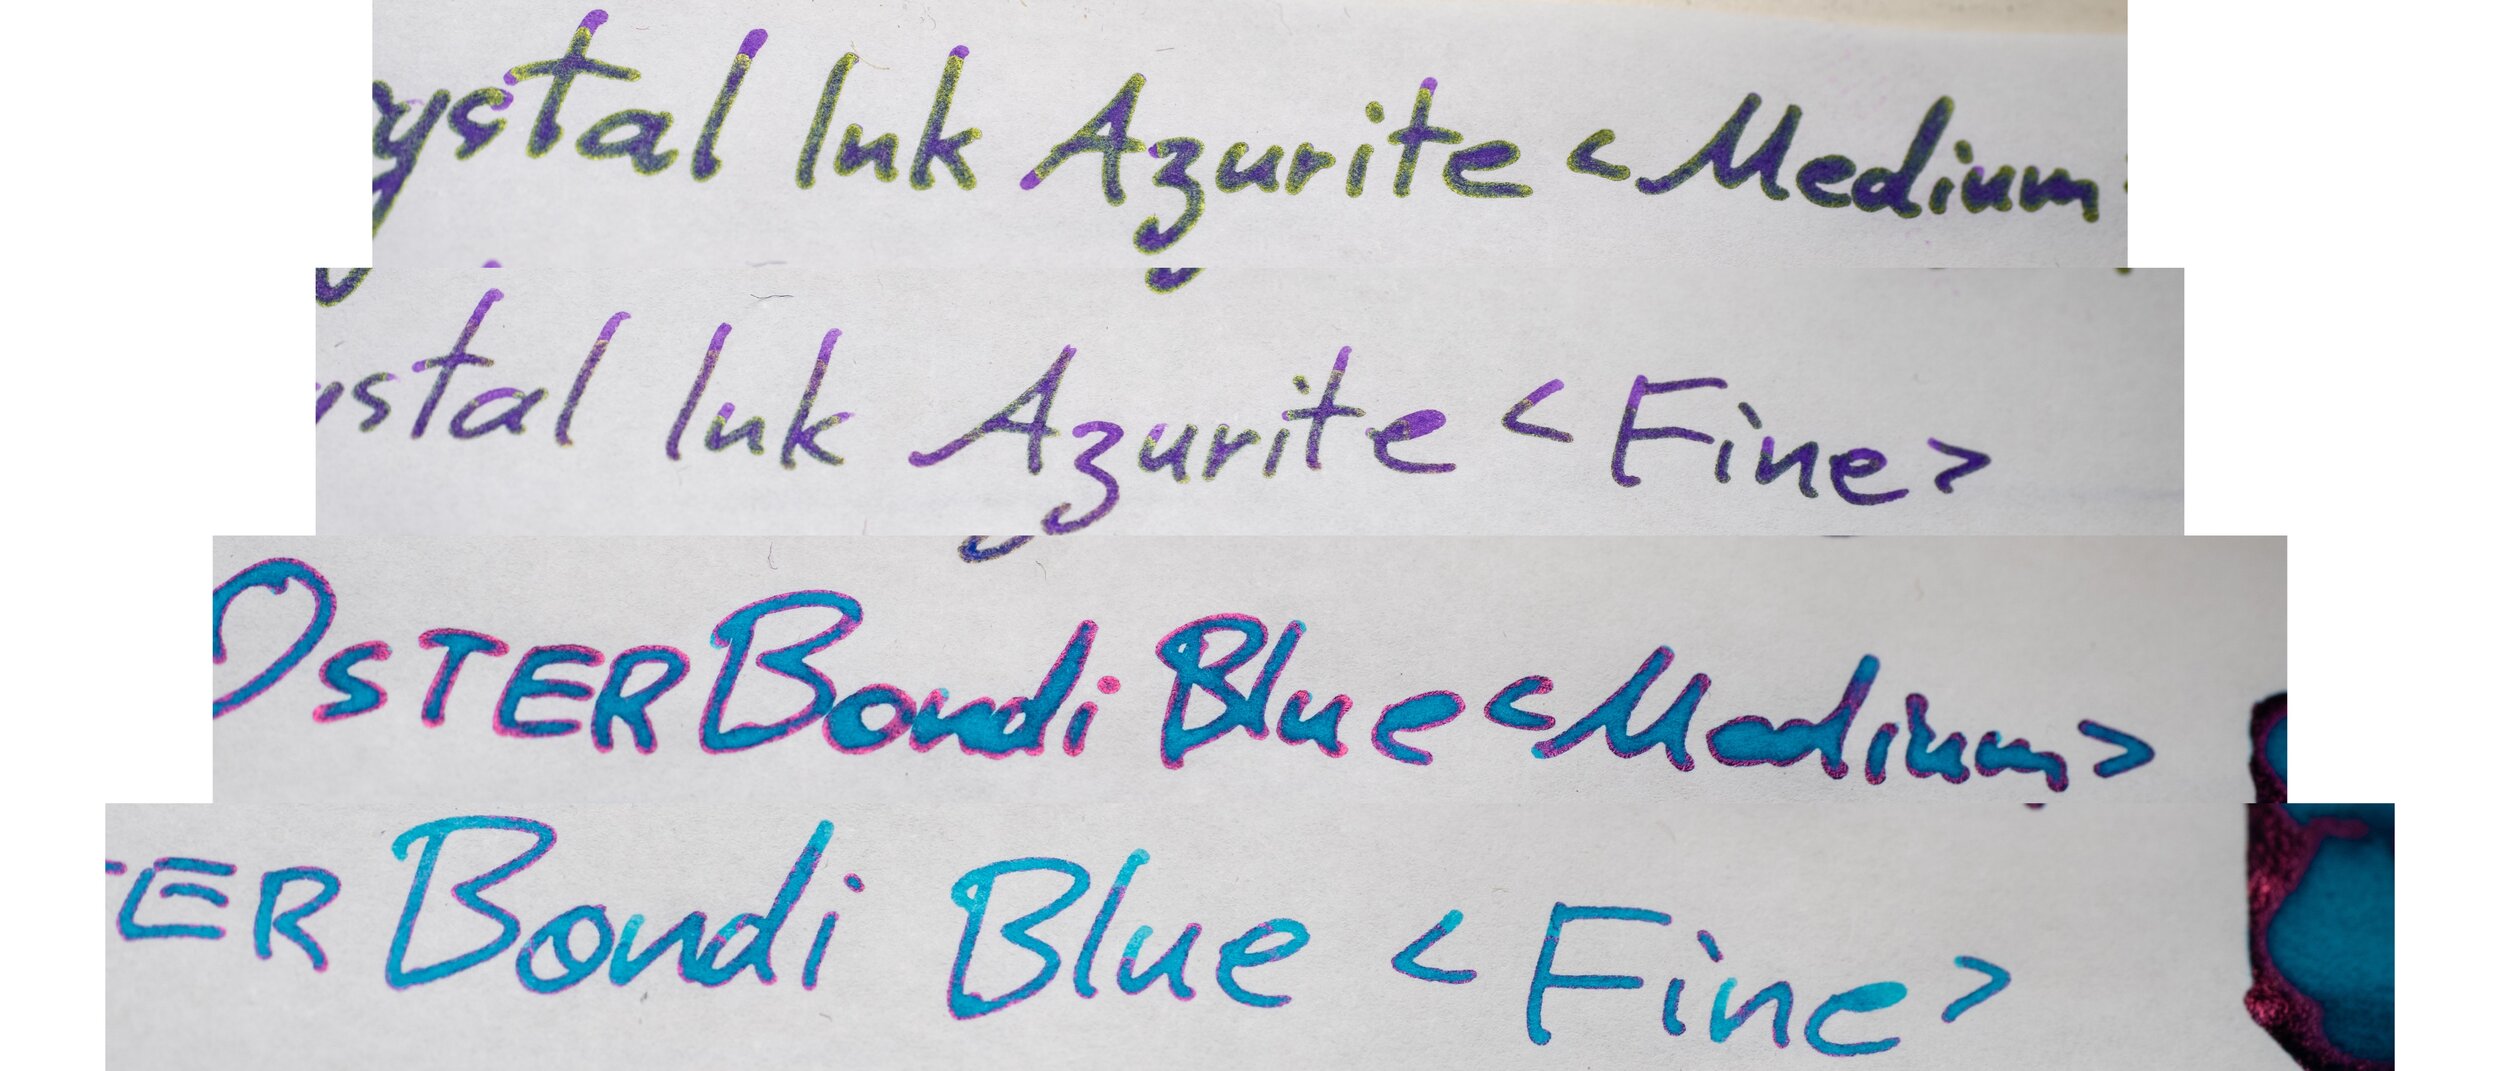 ystal Ink Azurite <Medium>
ystal Ink Azurite <Fine>
OSTER Bondi Blue <Medium>
TER Bondi Blue <Fine>